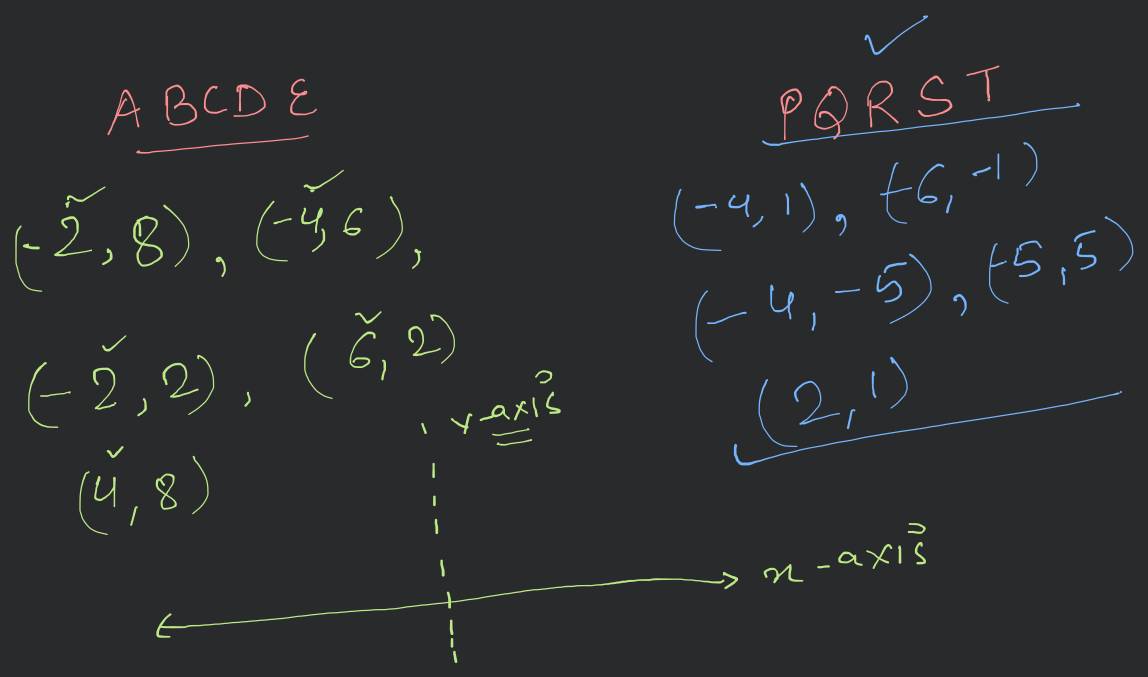 A B C D E
(-2, 8), (-4, 6),
(-2, 2), (6, 2)
(4, 8)
P Q R S T
(-4, 1), (-6, -1)
(-4, -5), (-5, 5)
(2, 1)
Y-axis
x-axis